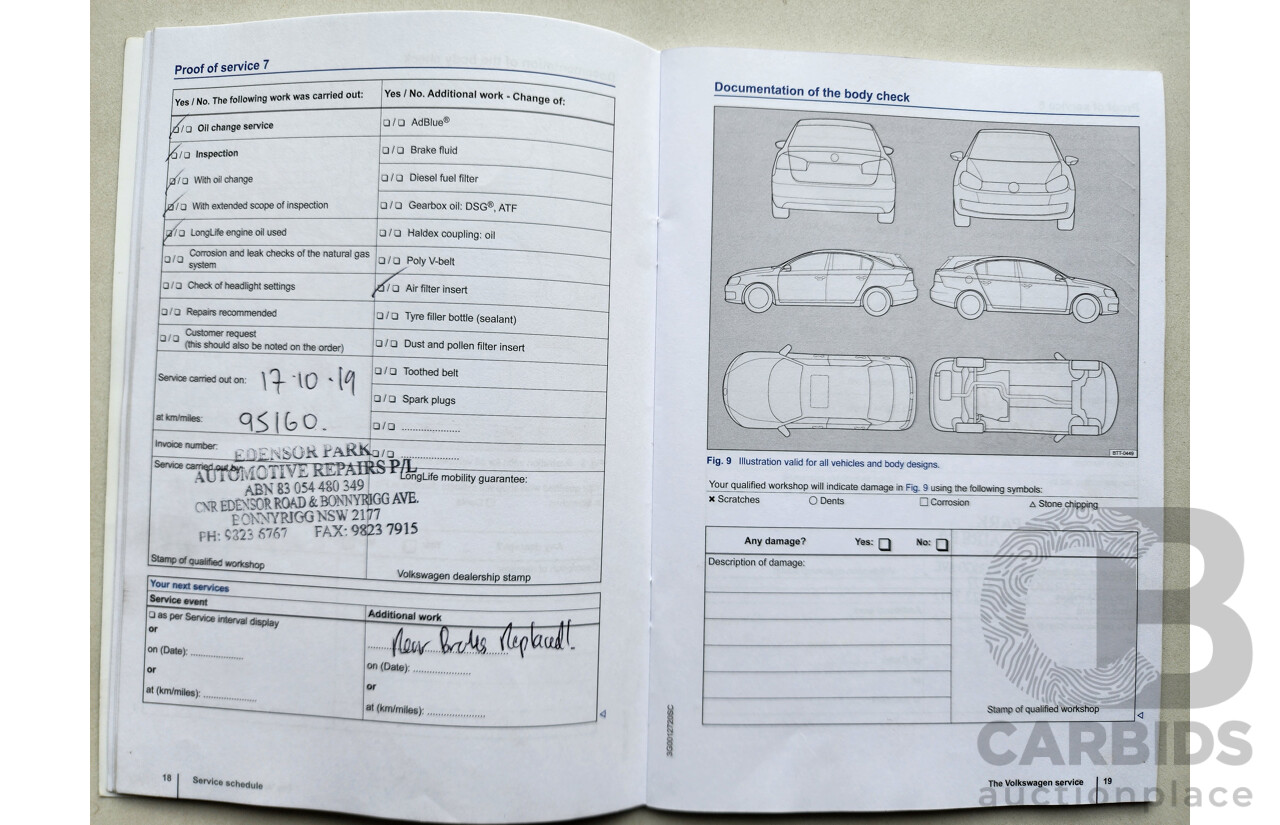 Proof of service 7
Yes / No. The following work was carried out:
❑ / ❑ Oil change service
❑ / ❑ Inspection
❑ / ❑ With oil change
❑ / ❑ With extended scope of inspection
❑ / ❑ LongLife engine oil used
❑ / ❑ Corrosion and leak checks of the natural gas
system
❑ / ❑ Check of headlight settings
❑ / ❑ Repairs recommended
❑ / ❑ Customer request
(this should also be noted on the order)
Service carried out on: 17·10·19
at km/miles: 95160.
Invoice number:
Service carried out by:
EDENSOR PARK
AUTOMOTIVE REPAIRS P/L
ABN 83 054 480 349
CNR EDENSOR ROAD & BONNYRIGG AVE.
BONNYRIGG NSW 2177
PH: 9823 6767 FAX: 9823 7915
Stamp of qualified workshop
Yes / No. Additional work - Change of:
❑ / ❑ AdBlue®
❑ / ❑ Brake fluid
❑ / ❑ Diesel fuel filter
❑ / ❑ Gearbox oil: DSG®, ATF
❑ / ❑ Haldex coupling: oil
❑ / ❑ Poly V-belt
❑ / ❑ Air filter insert
❑ / ❑ Tyre filler bottle (sealant)
❑ / ❑ Dust and pollen filter insert
❑ / ❑ Toothed belt
❑ / ❑ Spark plugs
❑ / ❑ ....................
❑ / ❑ ....................
LongLife mobility guarantee:
Volkswagen dealership stamp
Your next services
Service event
❑ as per Service interval display
or
on (Date): ..................
or
at (km/miles): ..................
Additional work
Replaced!
on (Date): ....................
or
at (km/miles): ....................
18 Service schedule
Documentation of the body check
BTT-0449
Fig. 9 Illustration valid for all vehicles and body designs.
Your qualified workshop will indicate damage in Fig. 9 using the following symbols:
✖ Scratches ○ Dents □ Corrosion △ Stone chipping
Any damage? Yes: ❑ No: ❑
Description of damage:
Stamp of qualified workshop
The Volkswagen service 19
CB
CARBIDS
auctionplace